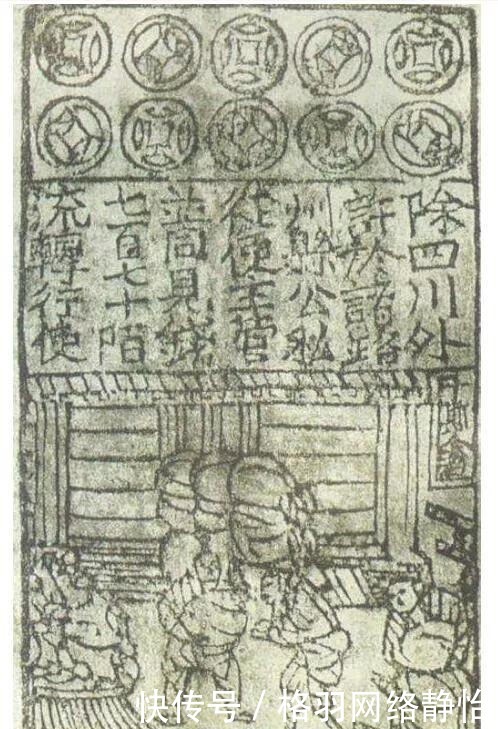 除四川外
許於諸路
州縣公私
從便主管
並同見錢
七百七十陌
流轉行使
快传号 / 格羽网络静怡